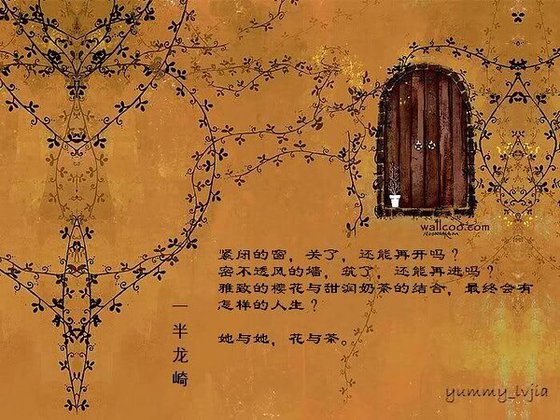 wallcoo.com
紧闭的窗，关了，还能再开吗？
密不透风的墙，筑了，还能再进吗？
雅致的樱花与甜润奶茶的结合，最终会有
怎样的人生？
她与她，花与茶。
一半龙崎
yummy_lvjia